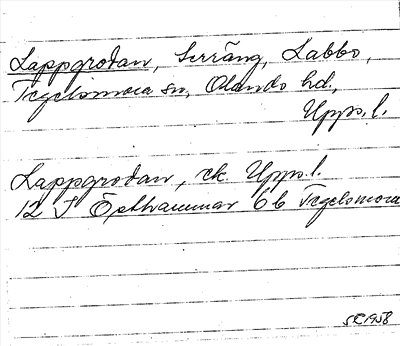 Lappgrodan, terräng, Labbo,
Tegelsmora sn, Olands hd,
Upps. l.
Lappgrodan, ek. Upps. l.
12 I Östhammar 6b Tegelsmora
SR 1958